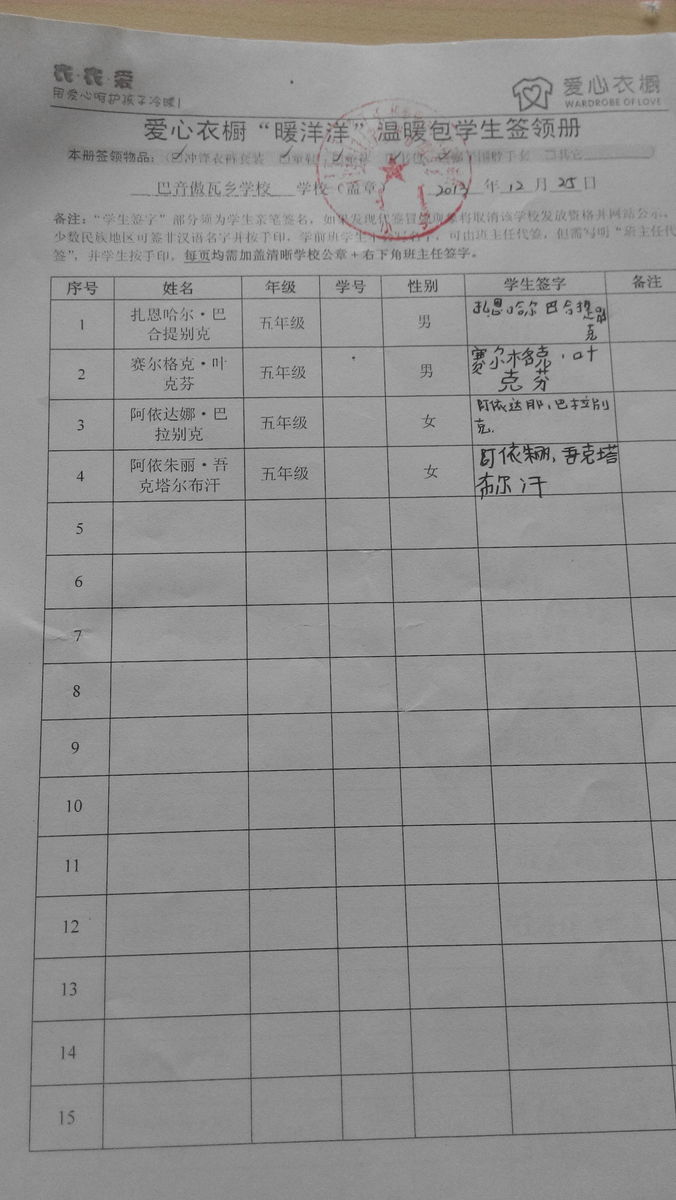 衣·衣·爱
用爱心呵护孩子冷暖！
爱心衣橱
WARDROBE OF LOVE
爱心衣橱“暖洋洋”温暖包学生签领册
本册签领物品：☑冲锋衣裤套装 ☑童鞋 ☑ ☑书包 ☑帽子围脖手套 □其它
巴音傲瓦乡学校 学校（盖章） 2013 年 12 月 25 日
备注：“学生签字”部分须为学生亲笔签名，如果发现代签冒领现象将取消该学校发放资格并网站公示，
少数民族地区可签非汉语名字并按手印，学前班学生不会写名字，可由班主任代签，但需写明“班主任代
签”，并学生按手印，每页均需加盖清晰学校公章+右下角班主任签字。
序号 姓名 年级 学号 性别 学生签字 备注
1 扎恩哈尔·巴合提别克 五年级 男 扎恩哈尔 巴合提别克
2 赛尔格克·叶克芬 五年级 男 赛尔格克·叶克芬
3 阿依达娜·巴拉别克 五年级 女 阿依达那、巴拉别克.
4 阿依朱丽·吾克塔尔布汗 五年级 女 阿依朱丽、吾克塔布尔汗
5
6
7
8
9
10
11
12
13
14
15